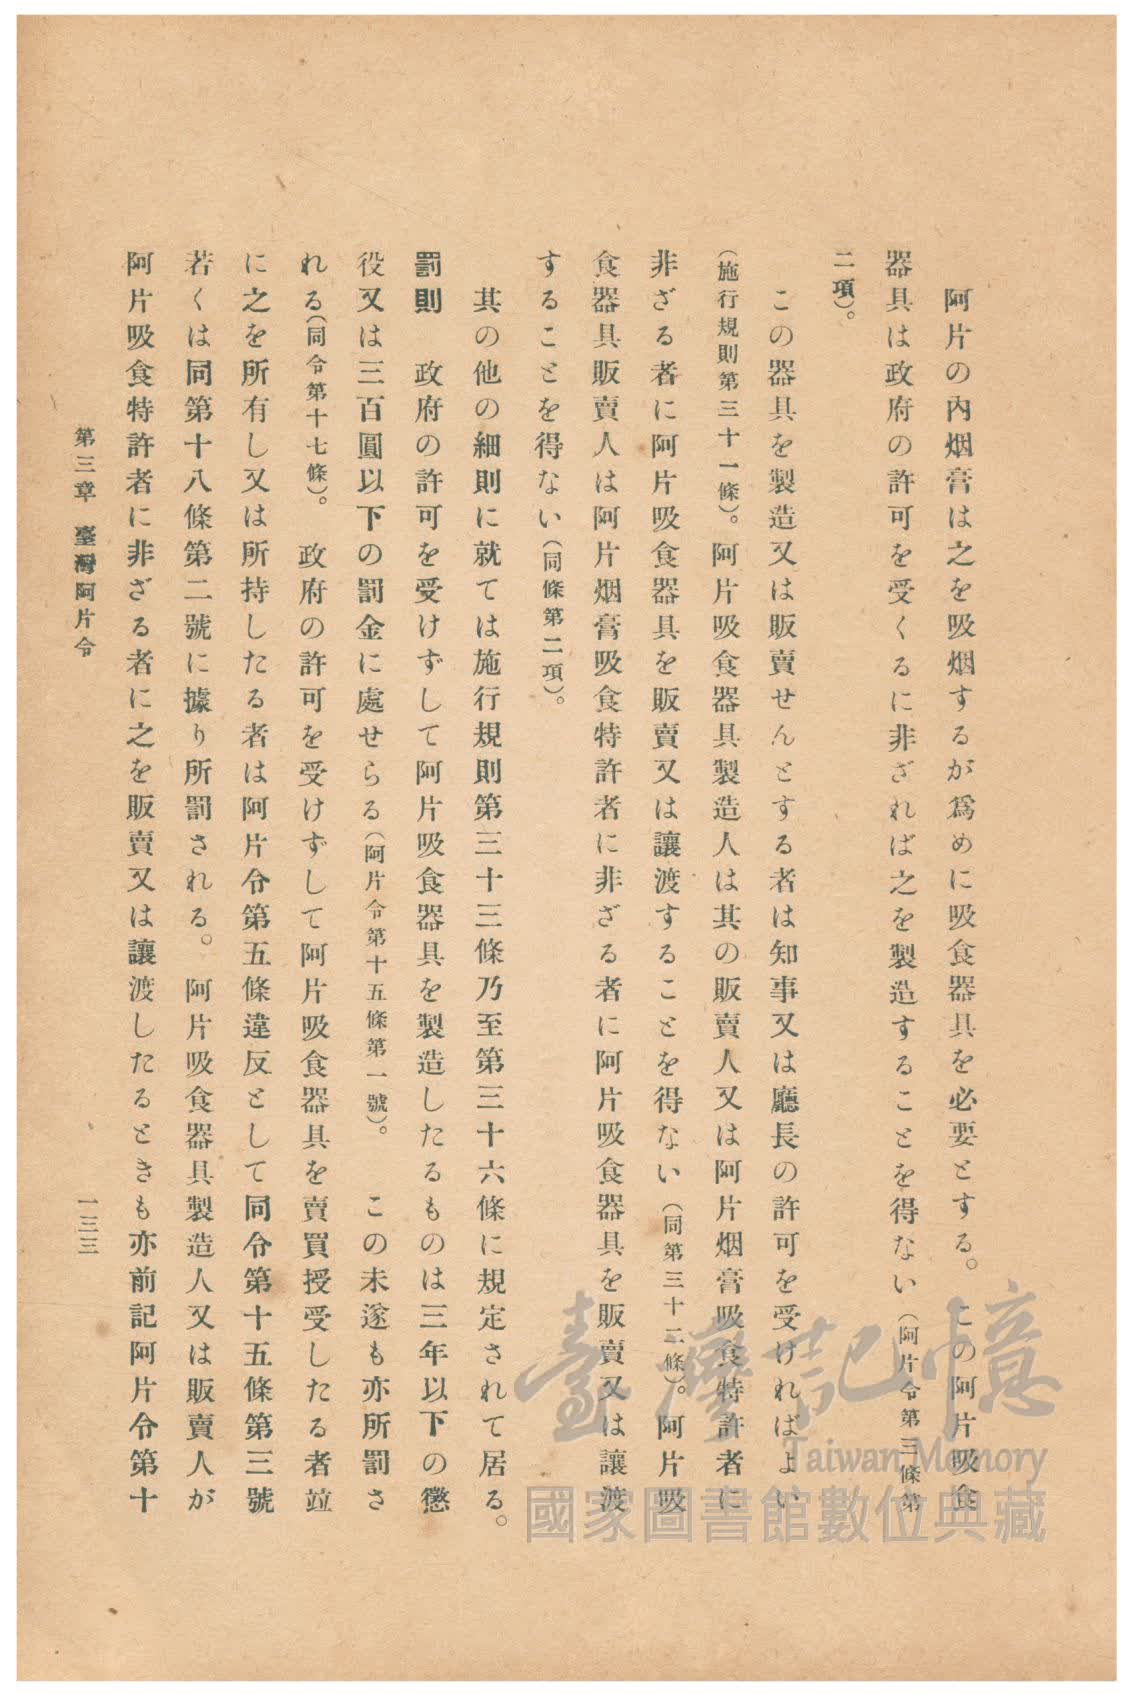 阿片の內烟膏は之を吸烟するが爲めに吸食器具を必要とする。この阿片吸食
器具は政府の許可を受くるに非ざれば之を製造することを得ない(阿片令第三條第
二項)。
この器具を製造又は販賣せんとする者は知事又は廳長の許可を受ければよい
(施行規則第三十一條)。阿片吸食器具製造人は其の販賣人又は阿片烟膏吸食特許者に
非ざる者に阿片吸食器具を販賣又は讓渡することを得ない(同第三十二條)。阿片吸
食器具販賣人は阿片烟膏吸食特許者に非ざる者に阿片吸食器具を販賣又は讓渡
することを得ない(同條第二項)。
其の他の細則に就ては施行規則第三十三條乃至第三十六條に規定されて居る。
罰則 政府の許可を受けずして阿片吸食器具を製造したるものは三年以下の懲
役又は三百圓以下の罰金に處せらる(阿片令第十五條第一號)。 この未遂も亦所罰さ
れる(同令第十七條)。 政府の許可を受けずして阿片吸食器具を賣買授受したる者竝
に之を所有し又は所持したる者は阿片令第五條違反として同令第十五條第三號
若くは同第十八條第二號に據り所罰される。阿片吸食器具製造人又は販賣人が
阿片吸食特許者に非ざる者に之を販賣又は讓渡したるときも亦前記阿片令第十
第三章 臺灣阿片令
一三三
臺灣記憶
Taiwan Memory
國家圖書館數位典藏